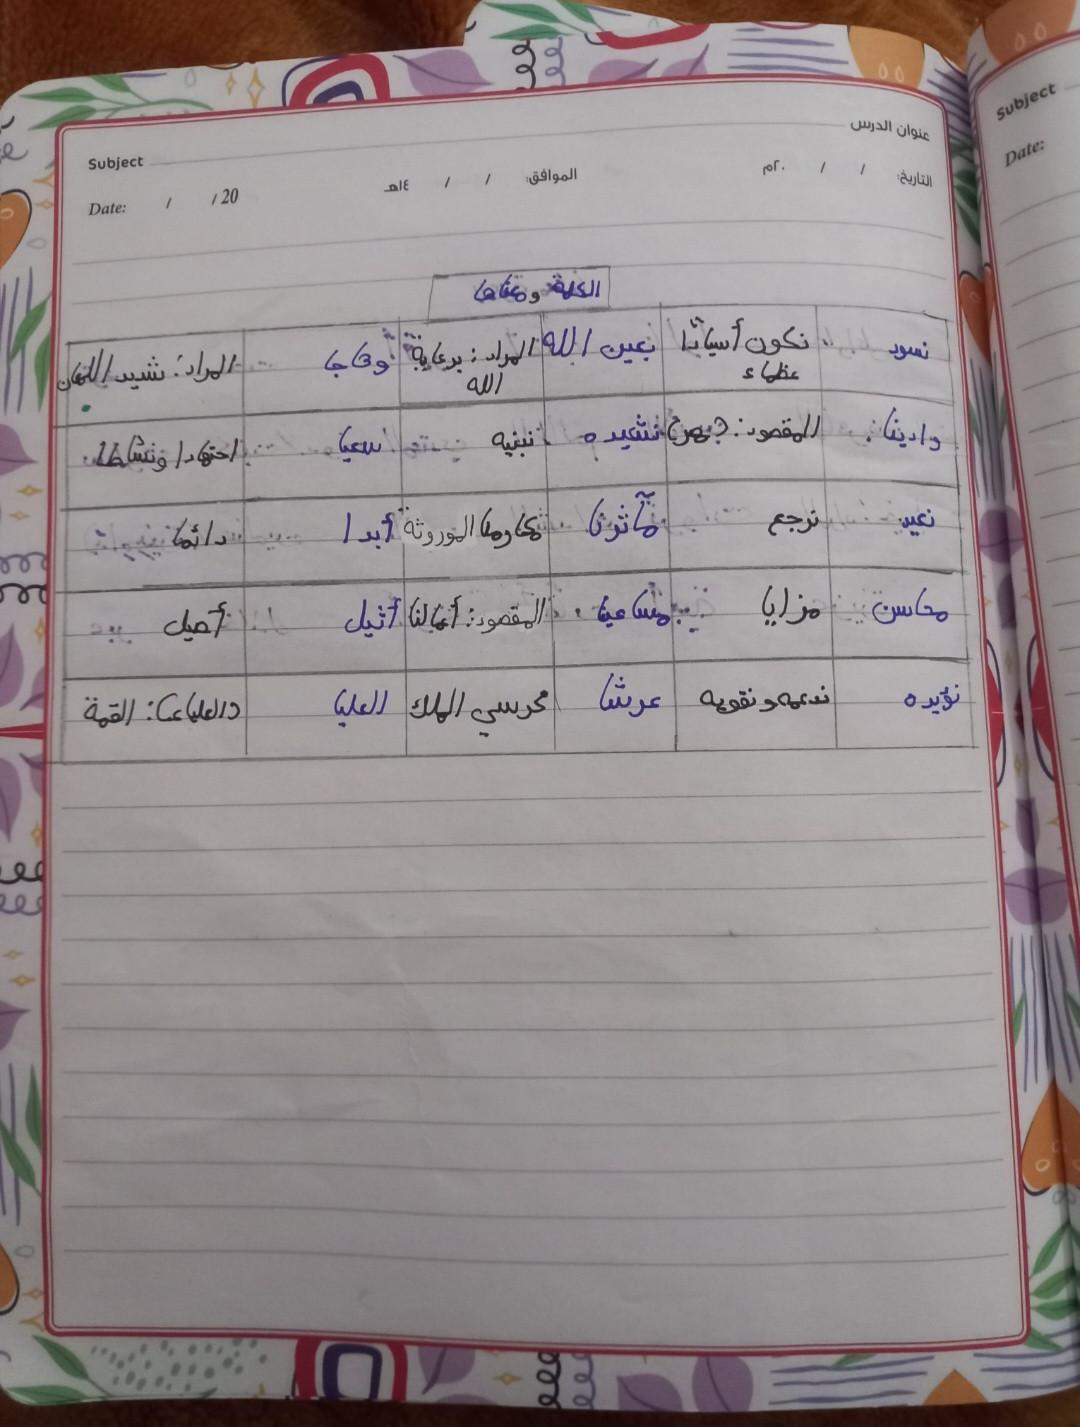 عنوان الدرس
Subject
التاريخ: / / ٢٠م
الموافق: / / ١٤هـ
Date: / / 20
الكلمة ومعناها
نسود نكون أسيادا عظماء بعين الله المراد: برعاية الله وهاجا المراد: شديد اللمعان
وادينا: المقصود: نشيده نبنيه سعيا اجتهادا ونشاطا
نعيد نرجع مآثرنا الموروثة أبدا دائما
محاسن مزايا مساعينا المقصود: أعمالنا أثيل أصيل
نؤيده ندعمه ونقويه عرشا كرسي الملك العليا القمة
Subject
Date: